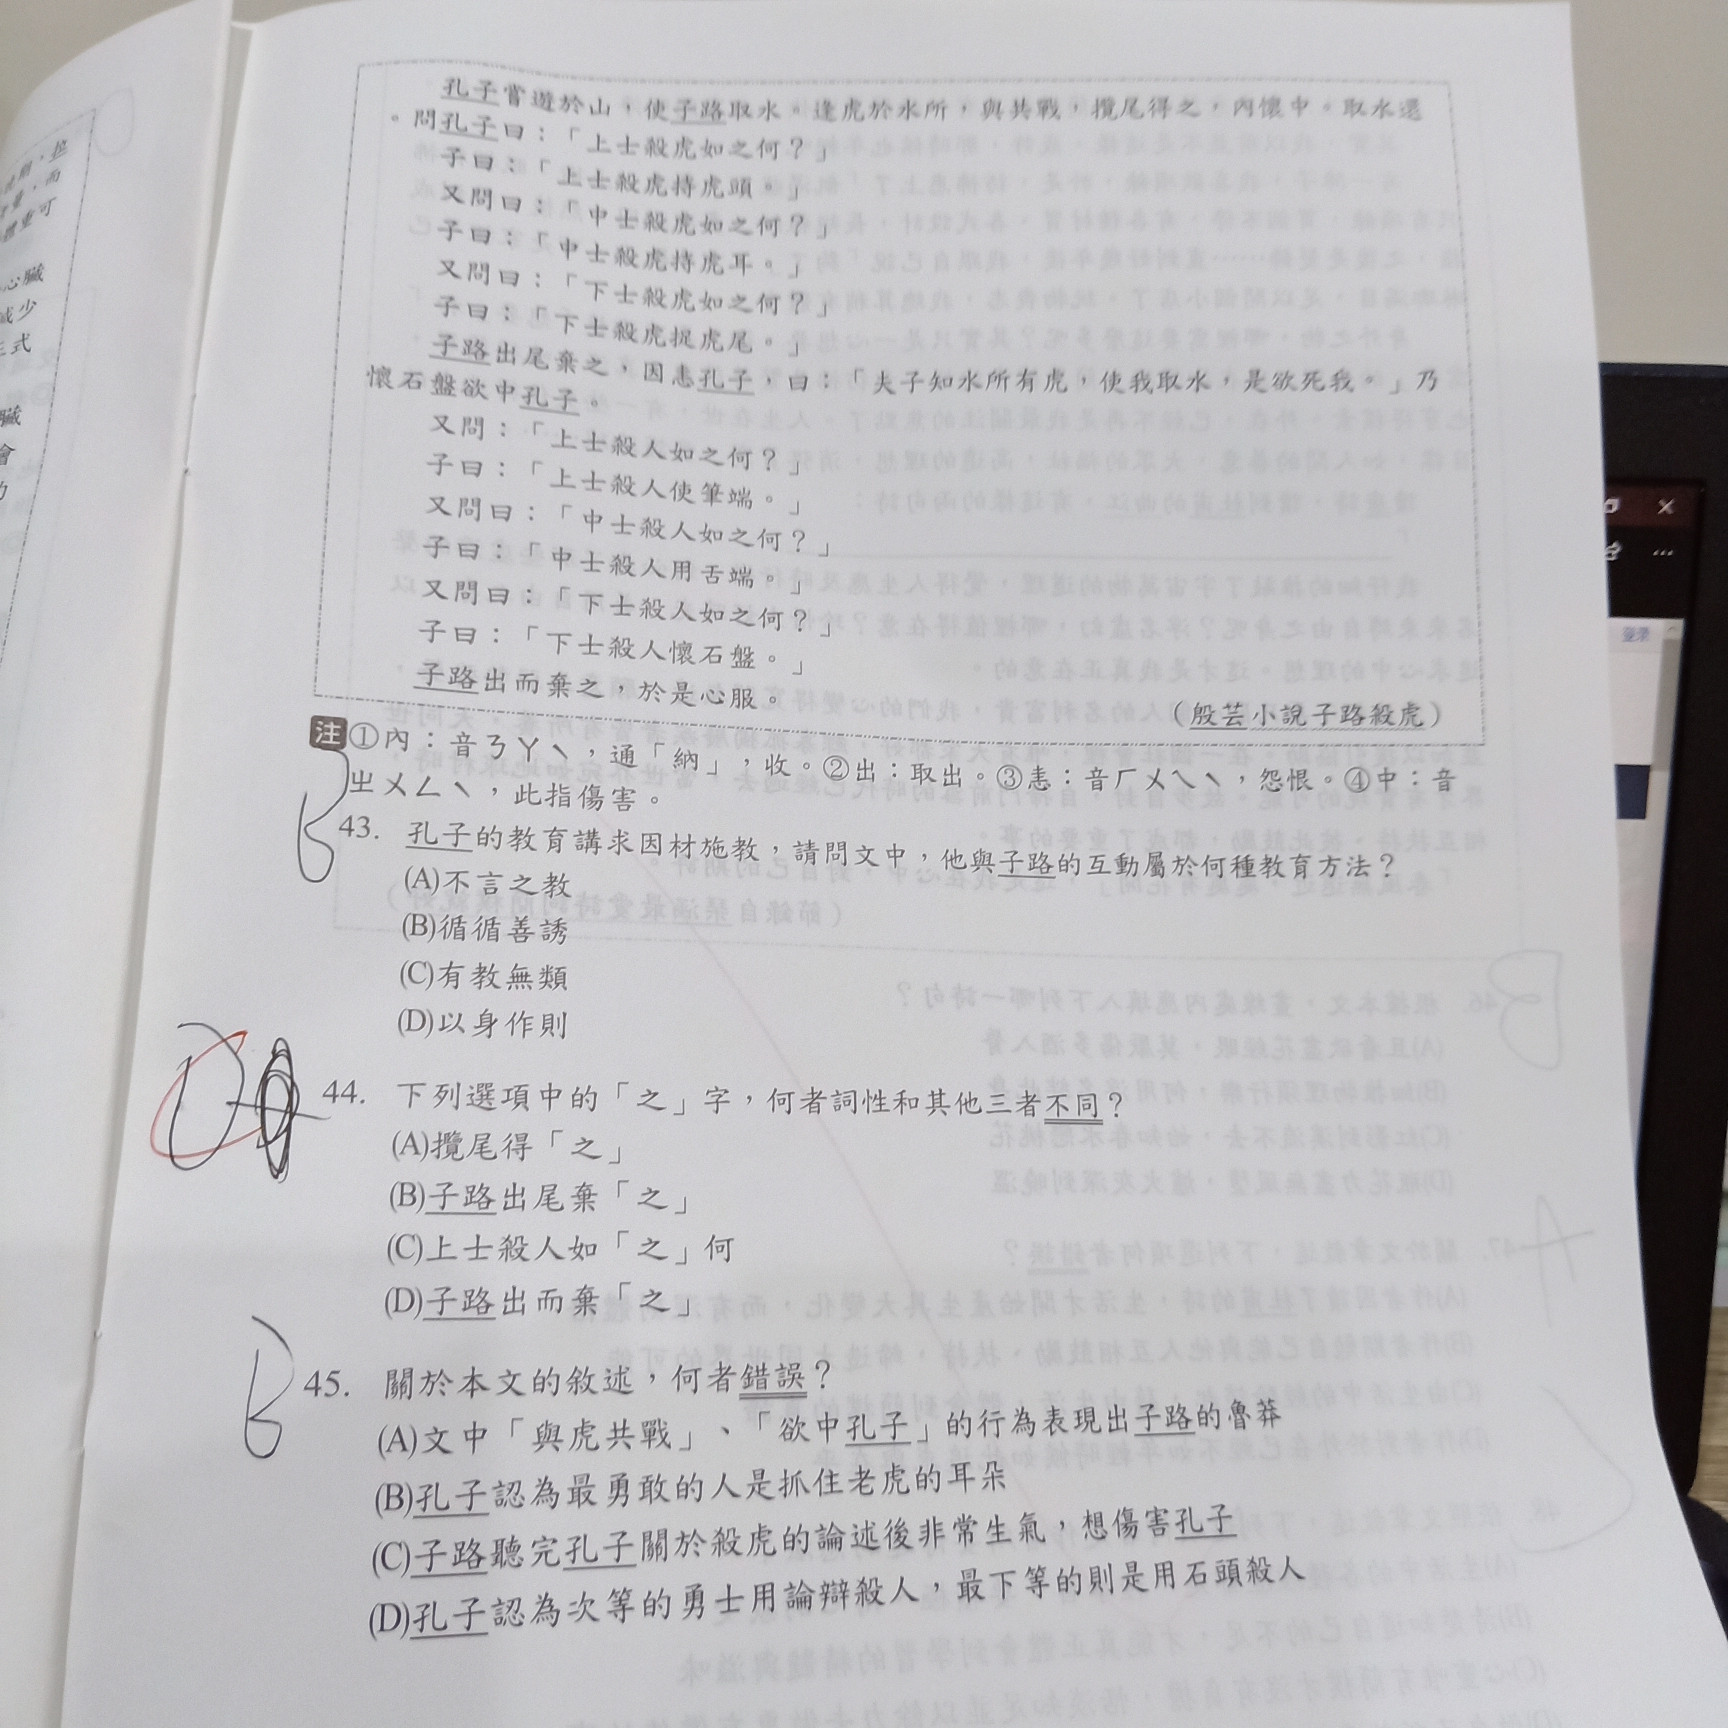 孔子嘗遊於山，使子路取水。逢虎於水所，與共戰，攬尾得之，內懷中。取水還
。問孔子曰：「上士殺虎如之何？」
子曰：「上士殺虎持虎頭。」
又問曰：「中士殺虎如之何？」
子曰：「中士殺虎持虎耳。」
又問曰：「下士殺虎如之何？」
子曰：「下士殺虎捉虎尾。」
子路出尾棄之，因恚孔子，曰：「夫子知水所有虎，使我取水，是欲死我。」乃
懷石盤欲中孔子。
又問：「上士殺人如之何？」
子曰：「上士殺人使筆端。」
又問曰：「中士殺人如之何？」
子曰：「中士殺人用舌端。」
又問曰：「下士殺人如之何？」
子曰：「下士殺人懷石盤。」
子路出而棄之，於是心服。
（殷芸小說子路殺虎）
注①內：音ㄋㄚˋ，通「納」，收。②出：取出。③恚：音ㄏㄨㄟˋ，怨恨。④中：音
ㄓㄨㄥˋ，此指傷害。
B
43. 孔子的教育講求因材施教，請問文中，他與子路的互動屬於何種教育方法？
(A)不言之教
(B)循循善誘
(C)有教無類
(D)以身作則
44. 下列選項中的「之」字，何者詞性和其他三者不同？
(A)攬尾得「之」
(B)子路出尾棄「之」
(C)上士殺人如「之」何
(D)子路出而棄「之」
B
45. 關於本文的敘述，何者錯誤？
(A)文中「與虎共戰」、「欲中孔子」的行為表現出子路的魯莽
(B)孔子認為最勇敢的人是抓住老虎的耳朵
(C)子路聽完孔子關於殺虎的論述後非常生氣，想傷害孔子
(D)孔子認為次等的勇士用論辯殺人，最下等的則是用石頭殺人